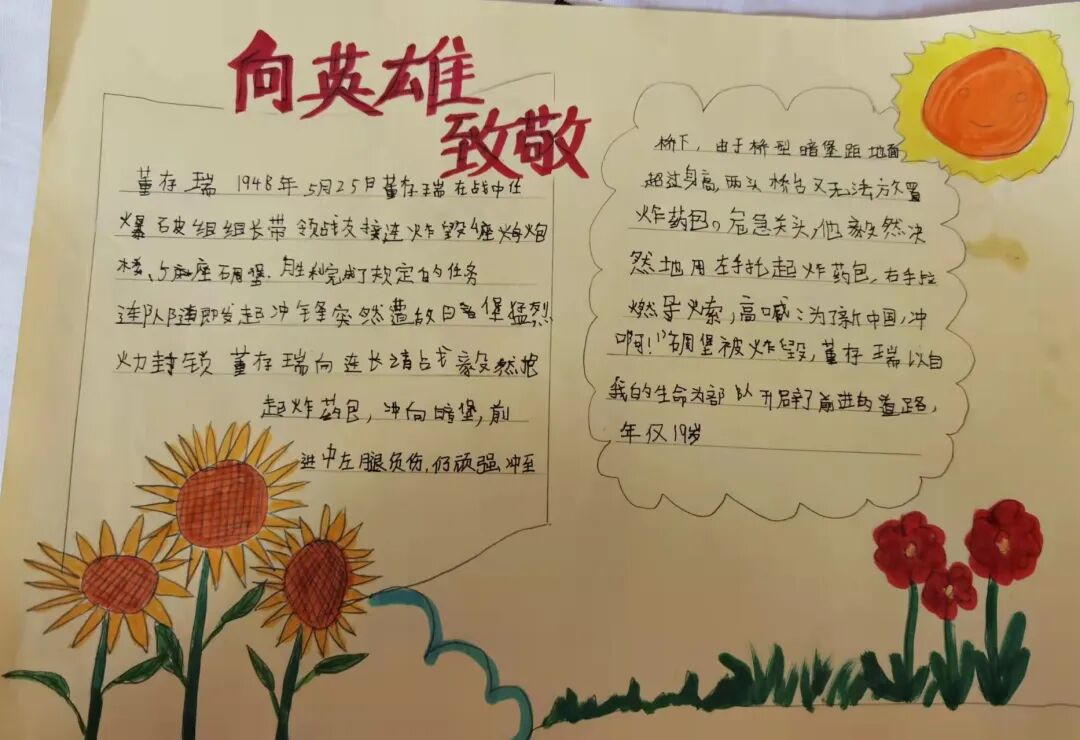 向英雄
致敬
董存瑞 1948年5月25日董存瑞在战中任
爆破组组长带领战友接连炸毁4座炮炮
楼、5座碉堡.胜利完成了规定的任务
连队随即发起冲锋突然遭敌暗堡猛烈
火力封锁 董存瑞向连长请战毅然抱
起炸药包,冲向暗堡,前
进中左腿负伤,仍顽强冲至
桥下,由于桥型暗堡距地面
超过身高,两头桥台又无法放置
炸药包。危急关头,他毅然决
然地用左手托起炸药包,右手拉
燃导火索,高喊:为了新中国,冲
啊!"碉堡被炸毁,董存瑞以自
我的生命为部队开辟了前进的道路,
年仅19岁